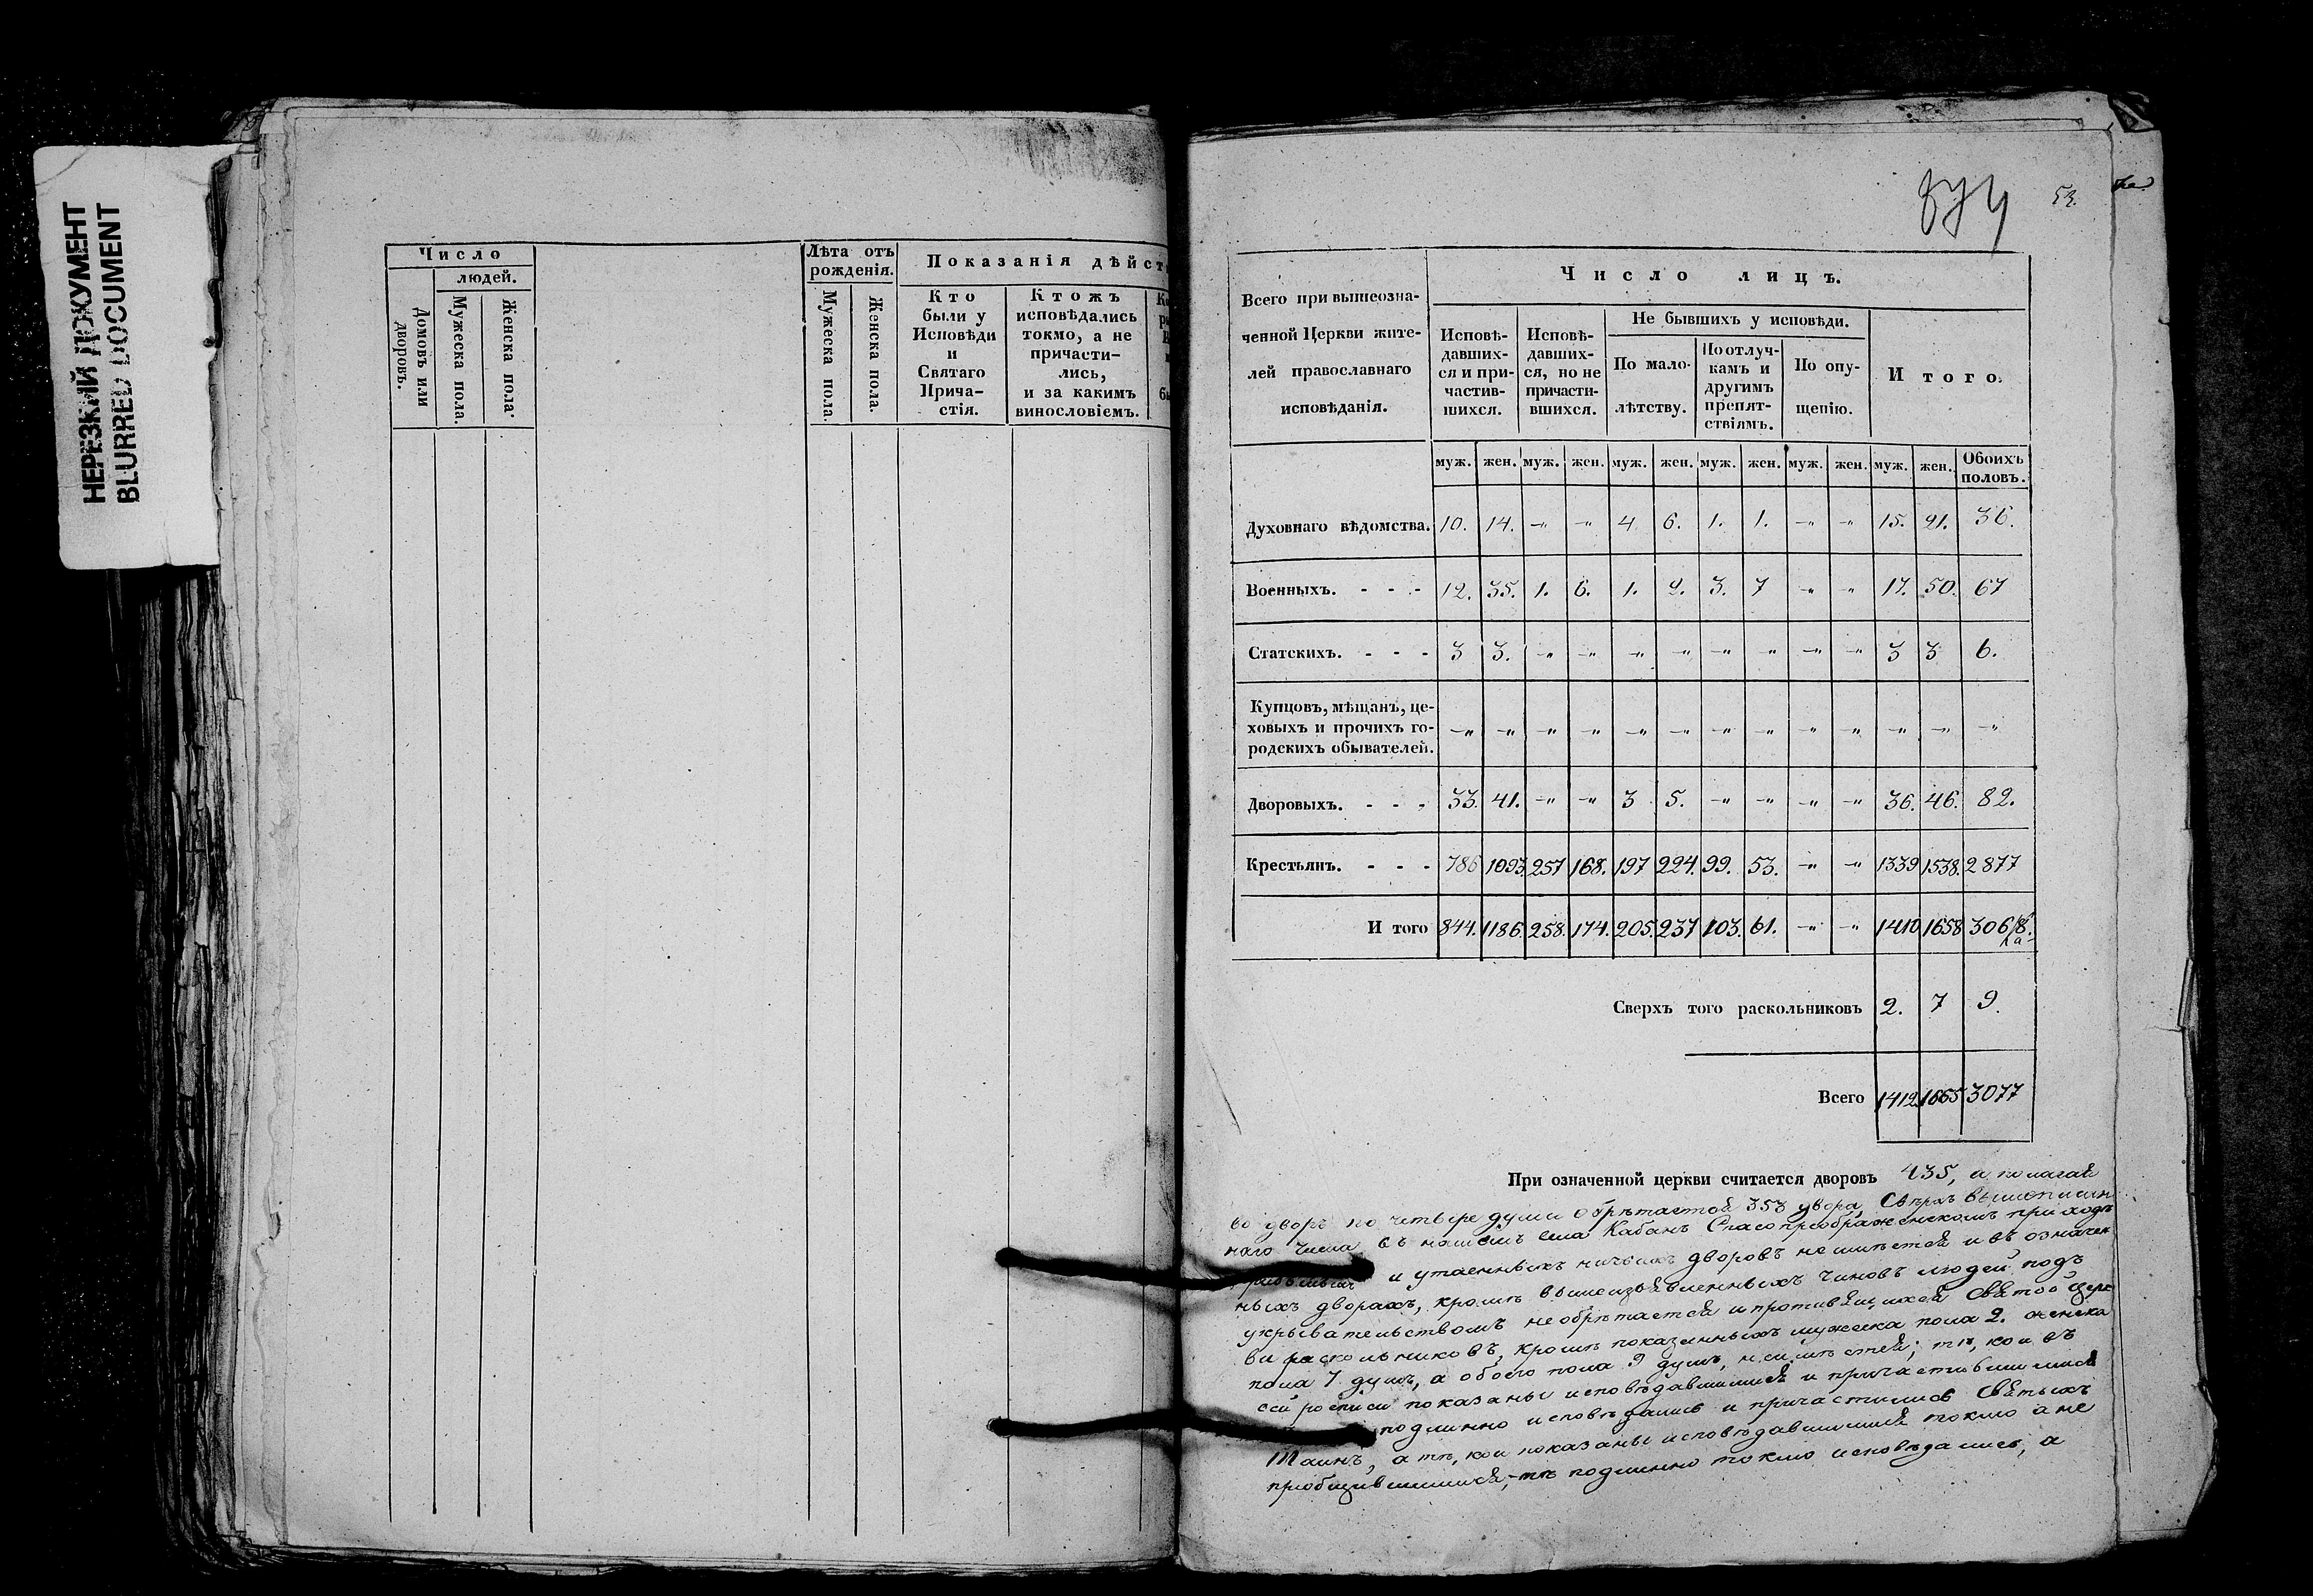 НЕРЕЗКИЙ ДОКУМЕНТ
BLURRED DOCUMENT
Число
людей.
Домовъ или дворовъ.
Мужеска пола.
Женска пола.
Лѣта отъ рожденія.
Мужеска пола.
Женска пола.
Показанія дѣйст
Кто были у Исповѣди и Святаго Прича- стія.
Ктожъ исповѣдались токмо, а не причасти- лись, и за какимъ винословіемъ.
874
53.
Всего при вышеозна-
ченной Церкви жите-
лей православнаго
исповѣданія.
Число лицъ.
Исповѣ- давших- ся и при- частив- шихся.
Исповѣ- давших- ся, но не причасти- вшихся.
Не бывшихъ у исповѣди.
По мало- лѣтству.
По отлуч- камъ и другимъ препят- ствіямъ.
По опу- щенію.
Итого.
муж. жен. муж. жен. муж. жен. муж. жен. муж. жен. муж. жен. Обоихъ половъ.
Духовнаго вѣдомства. 10. 14. -„ -„ 4. 6. 1. 1. -„ -„ 15. 21. 36.
Военныхъ. - - - 12. 35. 1. 6. 1. 2. 3. 7 -„ -„ 17. 50. 67
Статскихъ. - - - 3 3. -„ -„ -„ -„ -„ -„ -„ -„ 3 3 6.
Купцовъ, мѣщанъ, це-
ховыхъ и прочихъ го-
родскихъ обывателей. -„ -„ -„ -„ -„ -„ -„ -„ -„ -„ -„ -„ -„
Дворовыхъ. - - - 33. 41. -„ -„ 3 5. -„ -„ -„ -„ 36. 46. 82.
Крестьянъ. - - - 786 1093. 257 168. 197 224. 99. 53. -„ -„ 1339 1538. 2877
Итого 844. 1186. 258. 174. 205. 237 103. 61. -„ -„ 1410 1658 3068.
Сверхъ того раскольниковъ 2. 7 9.
Всего 1412 1665 3077
При означенной церкви считается дворовъ 435, а полагая
во дворъ по четыре души обрѣтается 353 двора, Сверхъ вышеписан
наго числа въ нашемъ села Кабанъ Спасопреображенскомъ приходѣ
и утаенныхъ ничьихъ дворовъ не имѣется и въ означен
ныхъ дворахъ, кромѣ вышеизъявленныхъ чиновъ людей подъ
укрывательствомъ не обрѣтается и противящихся Святой Церк
ви раскольниковъ, кромѣ показанныхъ мужеска пола 2. женска
пола 7 душъ, а обоего пола 9 душъ, не имѣется; тѣ, кои въ
сей росписи показаны исповѣдавшимися и причастившимися
подлинно исповѣдались и причастились Святыхъ
Таинъ, а тѣ, кои показаны исповѣдавшимися токмо а не
пріобщившимися, тѣ подлинно токмо исповѣдались, а